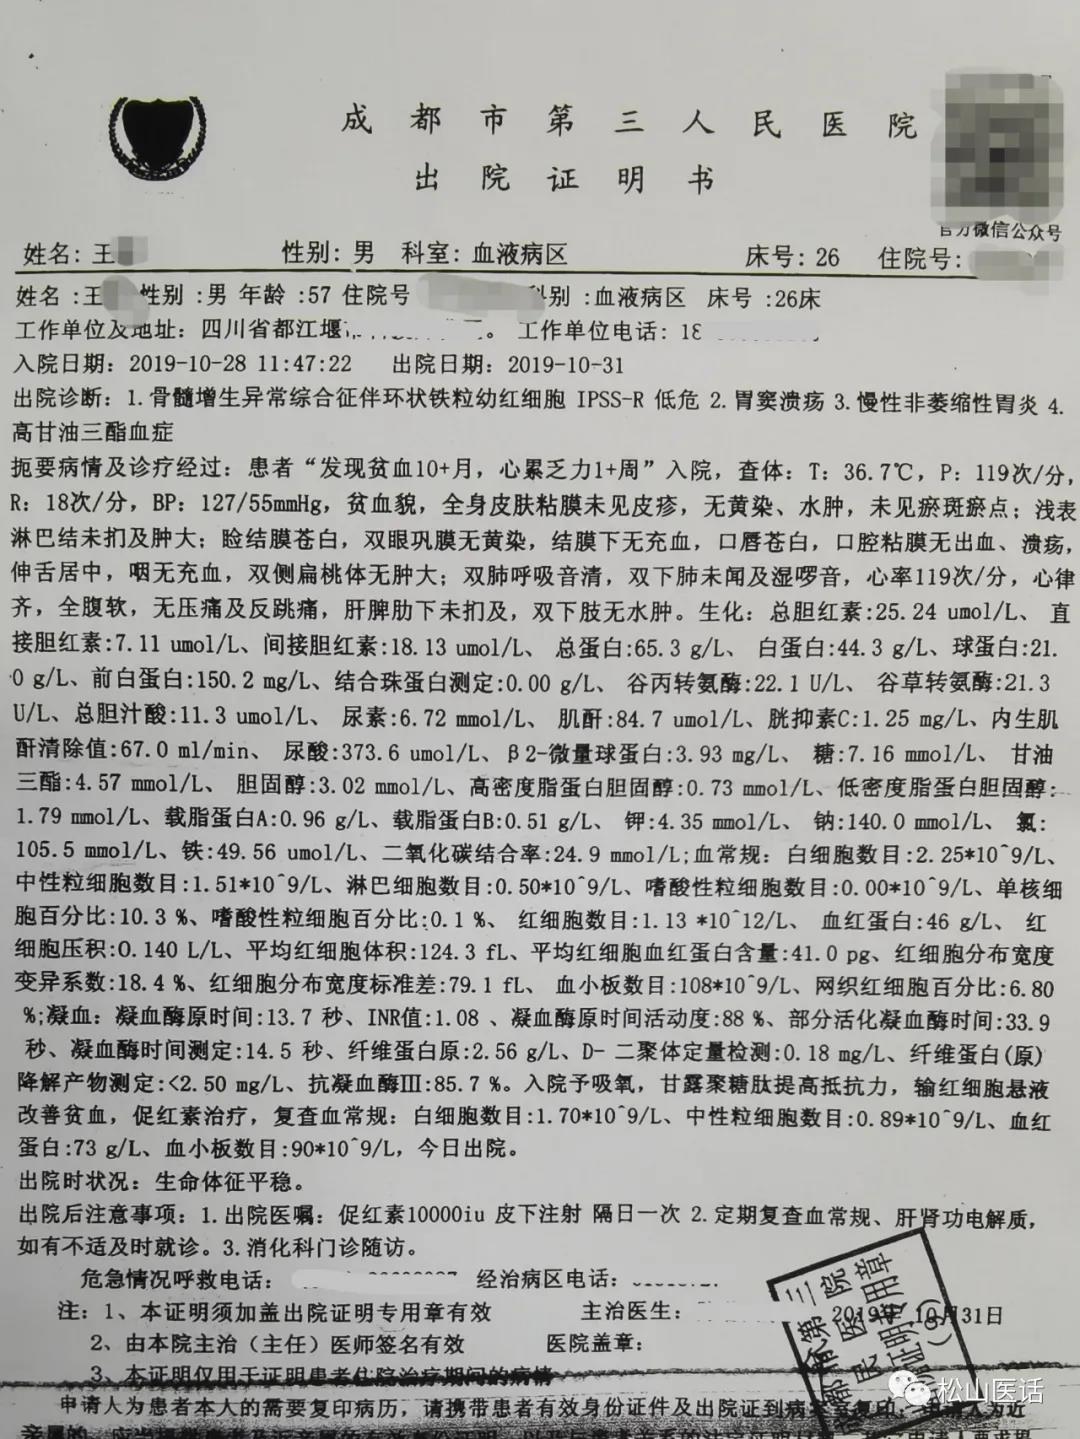 成都市第三人民医院
出院证明书
官方微信公众号
姓名: 王 性别: 男 科室: 血液病区 床号: 26 住院号:
姓名 :王 性别 :男 年龄 :57 住院号 科别 :血液病区 床号 :26床
工作单位及地址: 四川省都江堰 。 工作单位电话: 18
入院日期: 2019-10-28 11:47:22 出院日期: 2019-10-31
出院诊断: 1.骨髓增生异常综合征伴环状铁粒幼红细胞 IPSS-R 低危 2.胃窦溃疡 3.慢性非萎缩性胃炎 4.
高甘油三酯血症
扼要病情及诊疗经过: 患者“发现贫血10+月, 心累乏力1+周”入院, 查体: T: 36.7℃, P: 119次/分,
R: 18次/分, BP: 127/55mmHg, 贫血貌, 全身皮肤粘膜未见皮疹, 无黄染、水肿, 未见瘀斑瘀点; 浅表
淋巴结未扪及肿大; 睑结膜苍白, 双眼巩膜无黄染, 结膜下无充血, 口唇苍白, 口腔粘膜无出血、溃疡,
伸舌居中, 咽无充血, 双侧扁桃体无肿大; 双肺呼吸音清, 双下肺未闻及湿啰音, 心率119次/分, 心律
齐, 全腹软, 无压痛及反跳痛, 肝脾肋下未扪及, 双下肢无水肿。生化: 总胆红素:25.24 umol/L、 直
接胆红素:7.11 umol/L、间接胆红素:18.13 umol/L、 总蛋白:65.3 g/L、 白蛋白:44.3 g/L、球蛋白:21.
0 g/L、前白蛋白:150.2 mg/L、结合珠蛋白测定:0.00 g/L、 谷丙转氨酶:22.1 U/L、 谷草转氨酶:21.3
U/L、总胆汁酸:11.3 umol/L、 尿素:6.72 mmol/L、 肌酐:84.7 umol/L、胱抑素C:1.25 mg/L、内生肌
酐清除值:67.0 ml/min、 尿酸:373.6 umol/L、β2-微量球蛋白:3.93 mg/L、 糖:7.16 mmol/L、 甘油
三酯:4.57 mmol/L、 胆固醇:3.02 mmol/L、高密度脂蛋白胆固醇:0.73 mmol/L、低密度脂蛋白胆固醇:
1.79 mmol/L、载脂蛋白A:0.96 g/L、载脂蛋白B:0.51 g/L、 钾:4.35 mmol/L、 钠:140.0 mmol/L、 氯:
105.5 mmol/L、铁:49.56 umol/L、二氧化碳结合率:24.9 mmol/L;血常规: 白细胞数目:2.25*10^9/L、
中性粒细胞数目:1.51*10^9/L、淋巴细胞数目:0.50*10^9/L、嗜酸性粒细胞数目:0.00*10^9/L、单核细
胞百分比:10.3 %、嗜酸性粒细胞百分比:0.1 %、 红细胞数目:1.13 *10^12/L、 血红蛋白:46 g/L、 红
细胞压积:0.140 L/L、平均红细胞体积:124.3 fL、平均红细胞血红蛋白含量:41.0 pg、红细胞分布宽度
变异系数:18.4 %、红细胞分布宽度标准差:79.1 fL、 血小板数目:108*10^9/L、网织红细胞百分比:6.80
%;凝血: 凝血酶原时间:13.7 秒、INR值:1.08 、凝血酶原时间活动度:88 %、部分活化凝血酶时间:33.9
秒、凝血酶时间测定:14.5 秒、纤维蛋白原:2.56 g/L、D- 二聚体定量检测:0.18 mg/L、纤维蛋白(原)
降解产物测定:<2.50 mg/L、抗凝血酶Ⅲ:85.7 %。入院予吸氧, 甘露聚糖肽提高抵抗力, 输红细胞悬液
改善贫血, 促红素治疗, 复查血常规: 白细胞数目:1.70*10^9/L、中性粒细胞数目:0.89*10^9/L、血红
蛋白:73 g/L、血小板数目:90*10^9/L, 今日出院。
出院时状况: 生命体征平稳。
出院后注意事项: 1.出院医嘱: 促红素10000iu 皮下注射 隔日一次 2.定期复查血常规、肝肾功电解质,
如有不适及时就诊。3.消化科门诊随访。
危急情况呼救电话: 经治病区电话:
注: 1、本证明须加盖出院证明专用章有效 主治医生: 2019年 10月31日
2、由本院主治（主任）医师签名有效 医院盖章:
3、本证明仅用于证明患者住院治疗期间的病情
申请人为患者本人的需要复印病历, 请携带患者有效身份证件及出院证到病案室复印, 申请人为近
松山医话